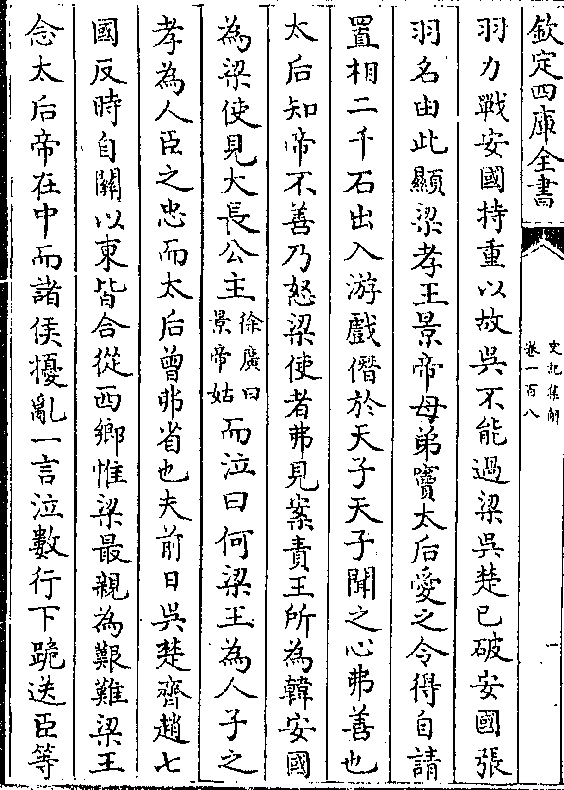 欽定四庫全書
史記集解
卷一百八
一
羽力戰安國持重以故吳不能過梁吳楚已破安國張
羽名由此顯梁孝王景帝母弟竇太后愛之令得自請
置相二千石出入游戲僭於天子天子聞之心弗善也
太后知帝不善乃怒梁使者弗見案責王所為韓安國
為梁使見大長公主徐廣曰景帝姑而泣曰何梁王為人子之
孝為人臣之忠而太后曾弗省也夫前日吳楚齊趙七
國反時自關以東皆合從西鄉惟梁最親為艱難梁王
念太后帝在中而諸侯擾亂一言泣數行下跪送臣等